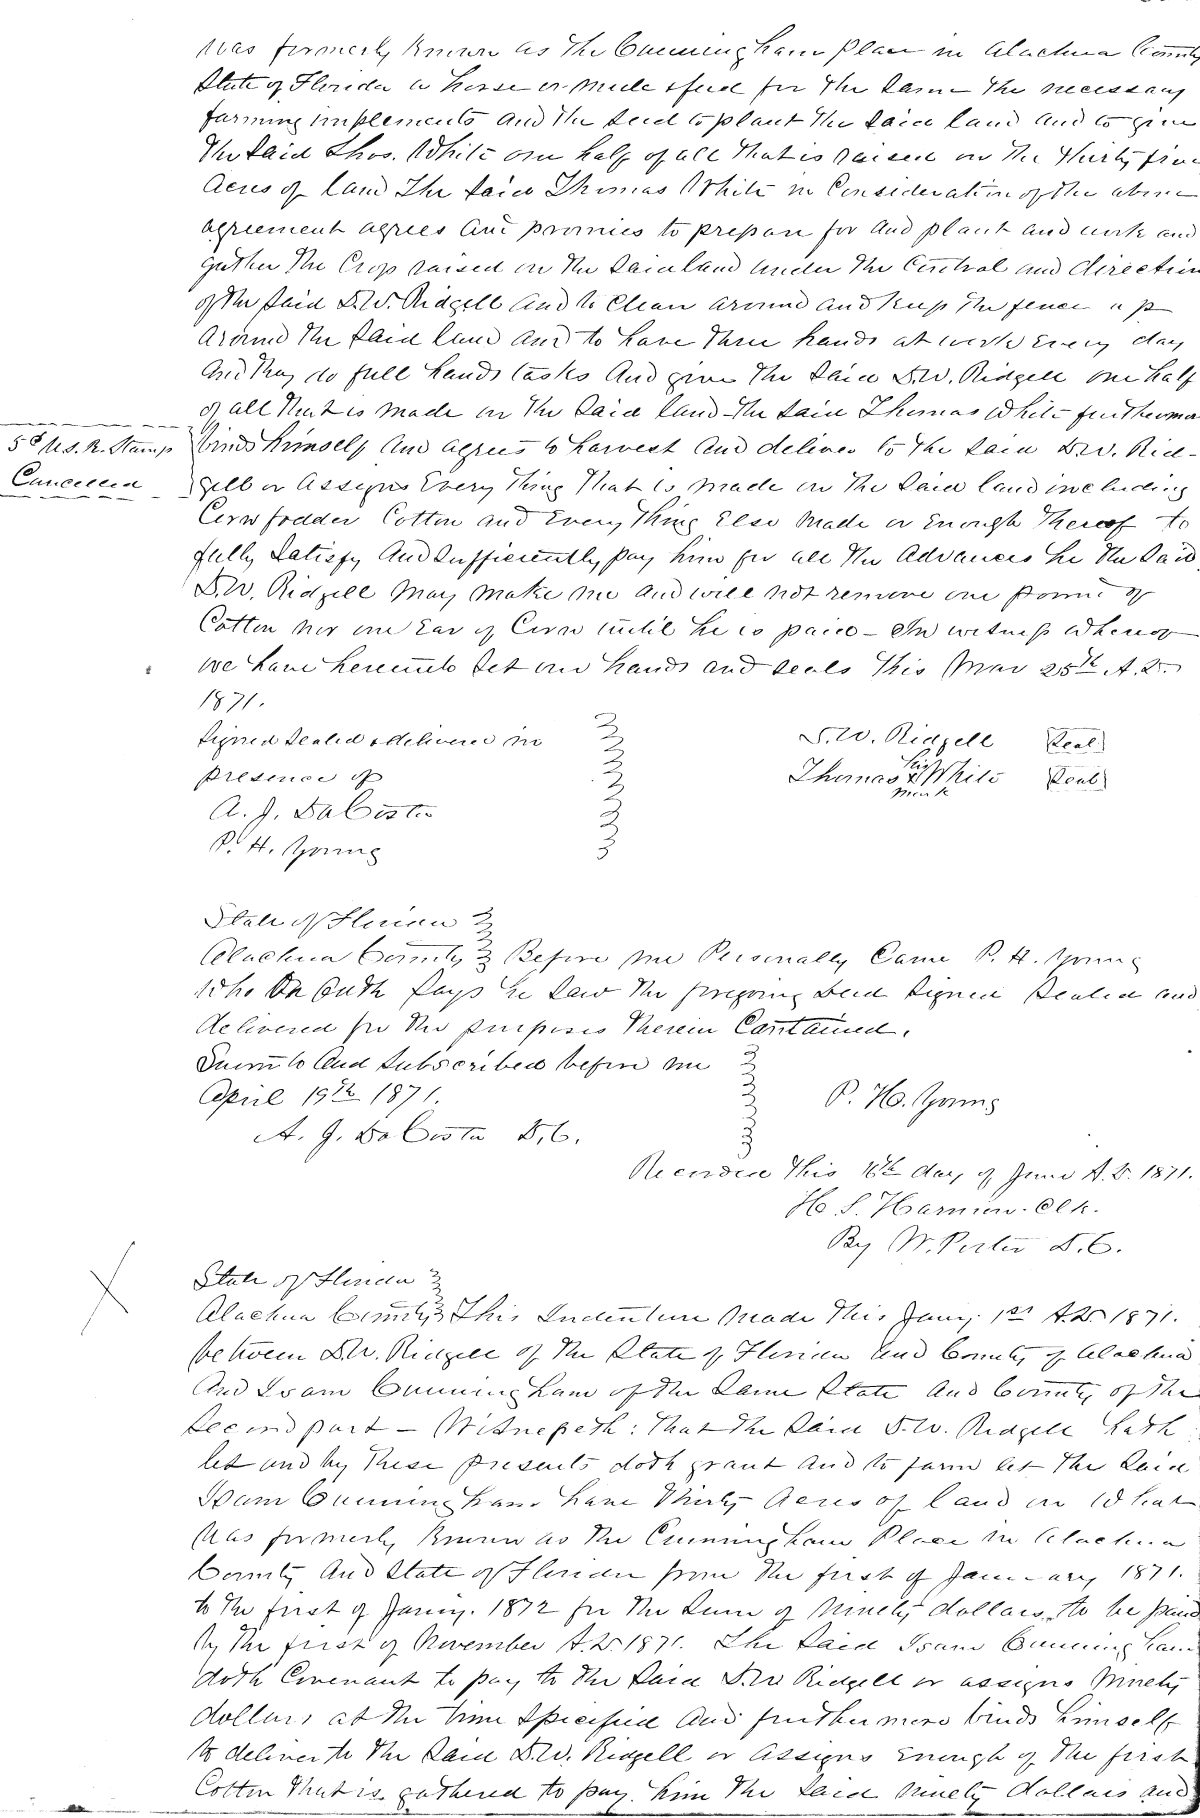 was formerly known as the Cunningham place in Alachua County
State of Florida a horse or mule & feed for the same the necessary
farming implements and the seed to plant the said land and to give
the said Thos. White one half of all that is raised on the thirty five
acres of land The said Thomas White in Consideration of the above
agreement agrees and promises to prepare for and plant and work and
gather the Crop raised on the said land under the Control and direction
of the said D.W. Ridgell and to clean around and keep the fence up
around the said land and to have three hands at work every day
and they do full hands tasks And give the said D.W. Ridgell one half
of all that is made on the said land the said Thomas White furthermore
5 ct U.S. R. Stamp
Cancelled
binds himself and agrees to harvest and deliver to the said D.W. Rid-
gell or assigns Every thing that is made on the said land including
Corn fodder Cotton and Every thing Else made or Enough thereof to
fully satisfy and sufficiently pay him for all the advances he the said
D.W. Ridgell may make me and will not remove one pound of
Cotton nor one Ear of Corn until he is paid – In witness whereof
we have hereunto set our hands and seals this Mar 25th A.D.
1871.
Signed sealed & delivered in
presence of
A. J. DaCosta
P. H. Young
D.W. Ridgell Seal
Thomas his X mark White Seal
State of Florida
Alachua County Before me Personally Came P. H. Young
who on oath says he saw the foregoing deed signed sealed and
delivered for the purposes therein Contained.
Sworn to and subscribed before me
April 19th 1871.
A. J. DaCosta D.C.
P. H. Young
Recorded this 16th day of June A.D. 1871.
H. S. Harmon. Clk.
By W. Porter D.C.
State of Florida
Alachua County This Indenture made this Jany. 1st A.D. 1871.
between D.W. Ridgell of the State of Florida and County of Alachua
And Isam Cunningham of the same State and County of the
second part – Witnesseth: that the said D.W. Ridgell hath
let and by these presents doth grant and to farm let the said
Isam Cunningham have thirty acres of land on what
was formerly known as the Cunningham Place in Alachua
County and State of Florida from the first of January 1871.
to the first of Jany. 1872 for the sum of ninety dollars, to be paid
by the first of November A.D. 1871. The said Isam Cunningham
doth Covenant to pay to the said D.W. Ridgell or assigns Ninety
dollars at the time specified and furthermore binds himself
to deliver to the said D.W. Ridgell or assigns enough of the first
Cotton that is gathered to pay him the said ninety dollars and